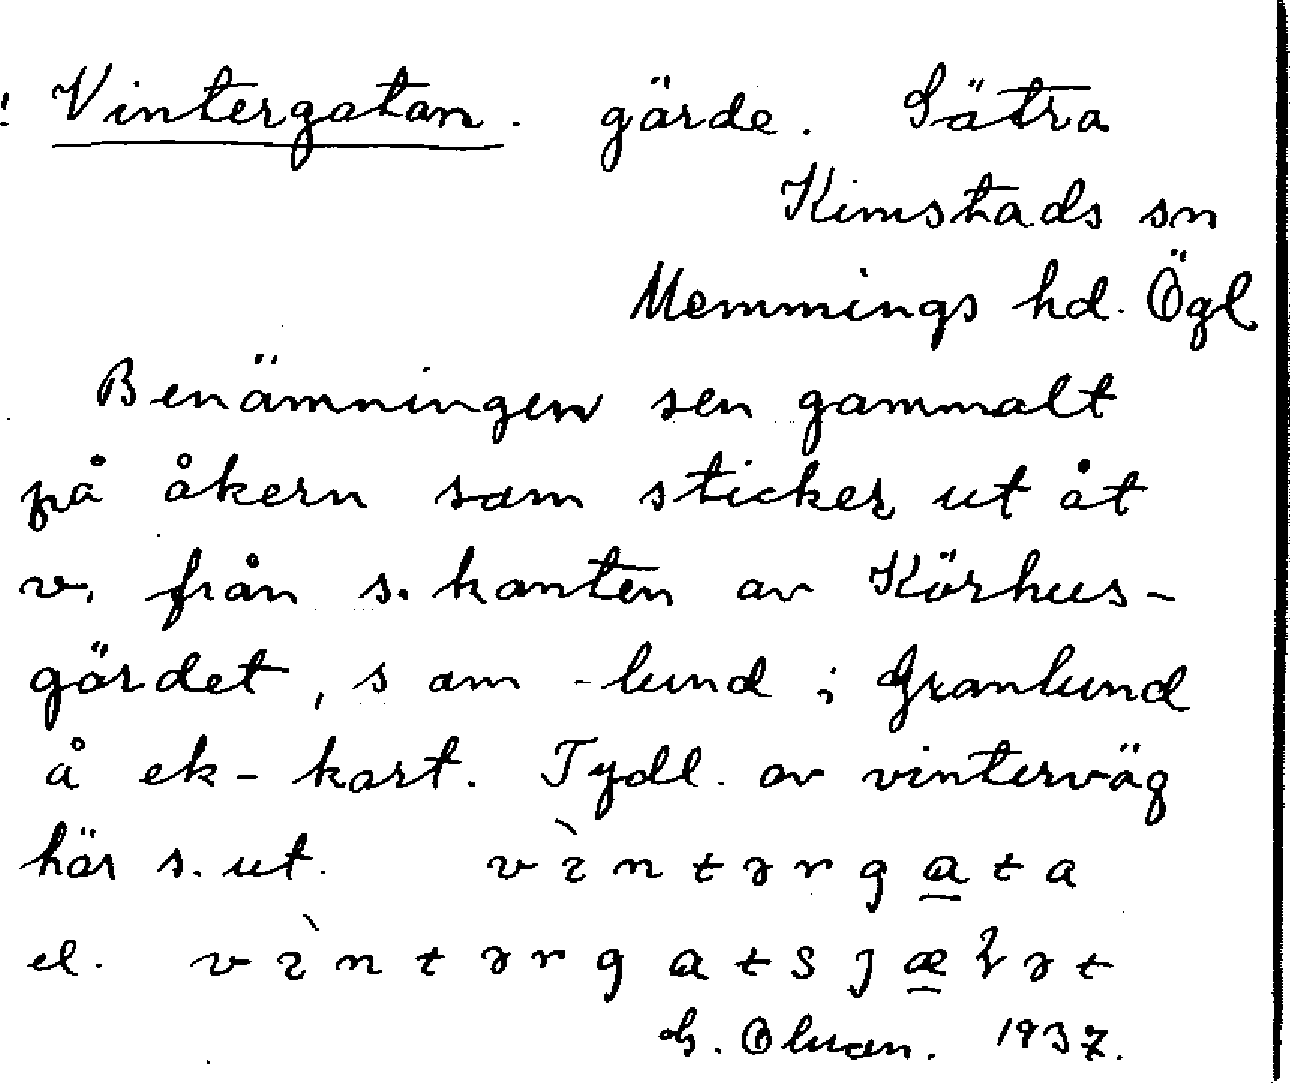 ! Vintergatan. gärde. Sätra
Kimstads sn
Memmings hd. Ögl
Benämningen sen gammalt
på åkern som sticker ut åt
v. från s. kanten av Körhus-
gärdet, s om -lund i Granlund
å ek-kart. Tydl. av vinterväg
här s. ut. vìntərgata
el. vìntərgatsjæ
G. 1937.